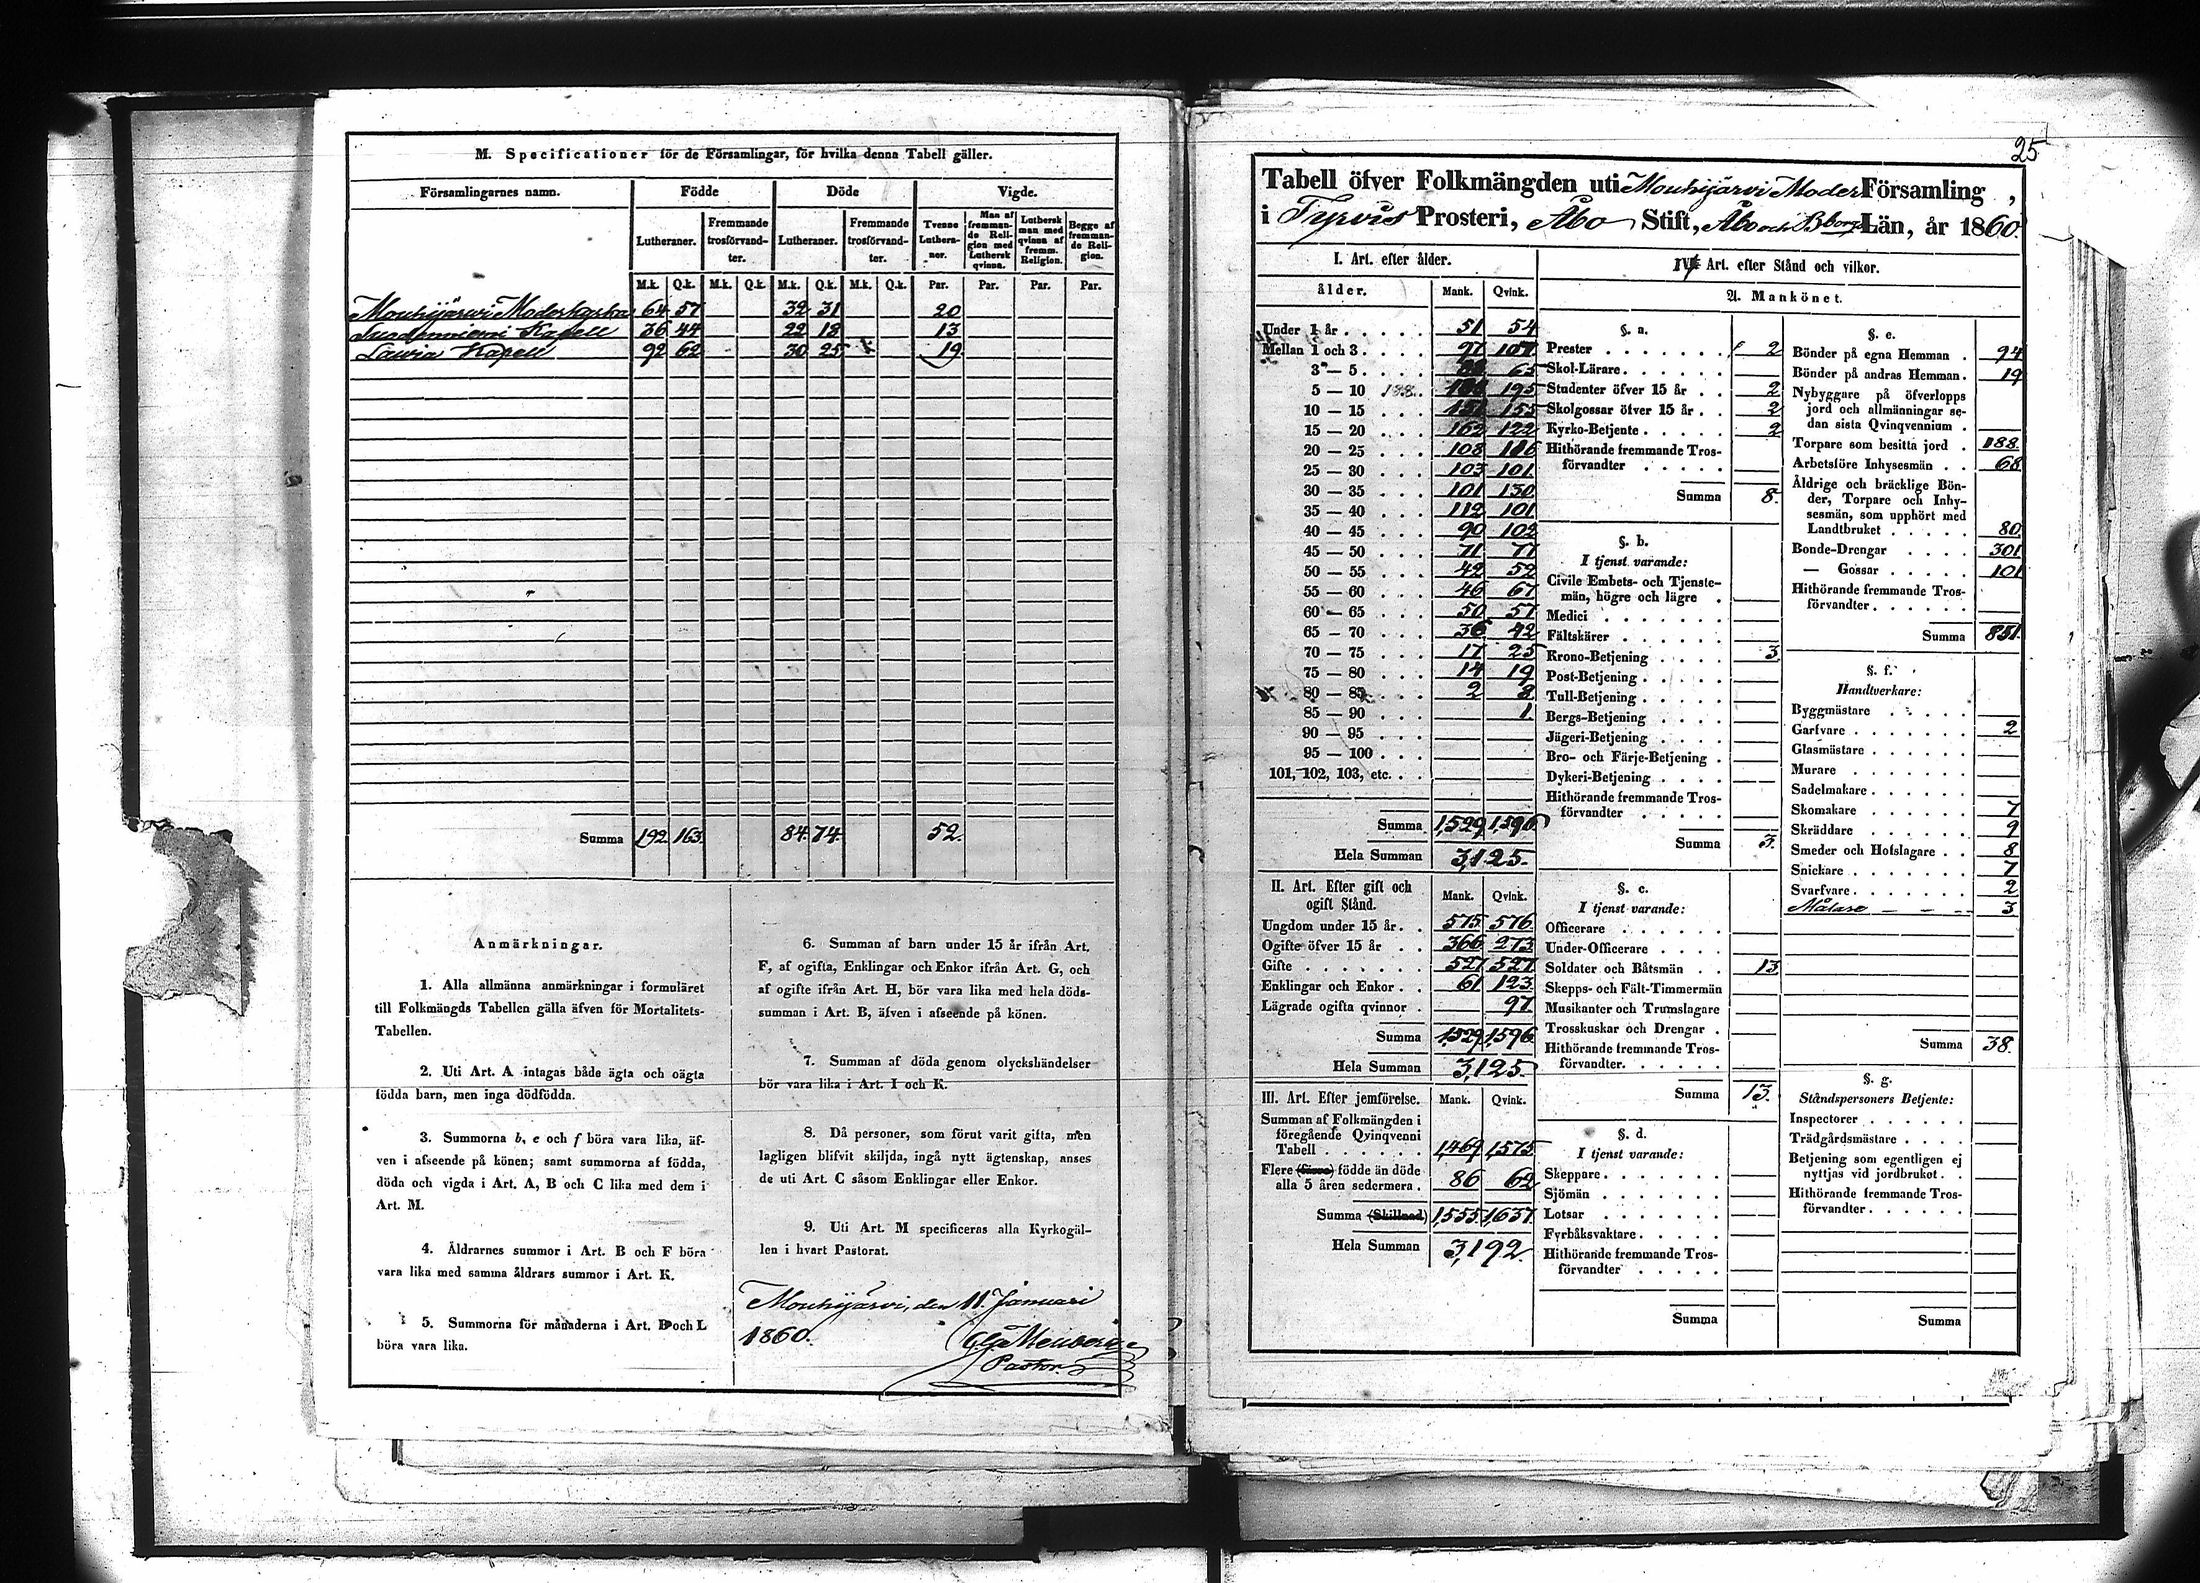 M. Specificationer för de Församlingar, för hvilka denna Tabell gäller.
Församlingarnes namn. Födde Döde Vigde.
Lutheraner. Fremmande trosförvandter. Lutheraner. Fremmande trosförvandter. Tvenne Lutheraner. Man af fremmande Religion med Luthersk qvinna. Luthersk man med qvinna af fremm. Religion. Begge af fremmande Religion.
M.k. Q.k. M.k. Q.k. M.k. Q.k. M.k. Q.k. Par. Par. Par. Par.
Mouhijärvi Moderkyrka 64 57 32 31 20
Suodenniemi Kapell 36 44 22 18 13
Lavia Kapell 92 62 30 25 19
Summa 192. 163. 84. 74. 52.
Anmärkningar.
1. Alla allmänna anmärkningar i formuläret
till Folkmängds Tabellen gälla äfven för Mortalitets-
Tabellen.
2. Uti Art. A intagas både ägta och oägta
födda barn, men inga dödfödda.
3. Summorna b, e och f böra vara lika, äf-
ven i afseende på könen; samt summorna af födda,
döda och vigda i Art. A, B och C lika med dem i
Art. M.
4. Åldrarnes summor i Art. B och F böra
vara lika med samma åldrars summor i Art. K.
5. Summorna för månaderna i Art. B och L
böra vara lika.
6. Summan af barn under 15 år ifrån Art.
F, af ogifta, Enklingar och Enkor ifrån Art. G, och
af ogifte ifrån Art. H, bör vara lika med hela döds-
summan i Art. B, äfven i afseende på könen.
7. Summan af döda genom olyckshändelser
bör vara lika i Art. I och K.
8. Då personer, som förut varit gifta, men
lagligen blifvit skiljda, ingå nytt ägtenskap, anses
de uti Art. C såsom Enklingar eller Enkor.
9. Uti Art. M specificeras alla Kyrkogäl-
len i hvart Pastorat.
Mouhijärvi, den 11. Januari
1860.
Pastor.
25
Tabell öfver Folkmängden uti Mouhijärvi Moder Församling,
i Tyrvis Prosteri, Åbo Stift, Åbo och Bborgs Län, år 1860.
I. Art. efter ålder.
ålder. Mank. Qvink.
Under 1 år 51 54
Mellan 1 och 3 97 107
3 — 5 65
5 — 10 188 195
10 — 15 151 155
15 — 20 162 122
20 — 25 108 116
25 — 30 103 101
30 — 35 101 130
35 — 40 112 101
40 — 45 90 102
45 — 50 71 77
50 — 55 42 52
55 — 60 46 67
60 — 65 50 57
65 — 70 36 42
70 — 75 17 25
75 — 80 14 19
80 — 85 2 8
85 — 90 1.
90 — 95
95 — 100
101, 102, 103, etc.
Summa 1,529 1,596
Hela Summan 3,125.
II. Art. Efter gift och
ogift Stånd. Mank. Qvink.
Ungdom under 15 år 575 576
Ogifte öfver 15 år 366 273
Gifte 527 527
Enklingar och Enkor 61 123
Lägrade ogifta qvinnor 97
Summa 1,529 1,596
Hela Summan 3,125.
III. Art. Efter jemförelse. Mank. Qvink.
Summan af Folkmängden i
föregående Qvinqvenni
Tabell 1,469 1,575
Flere (färre) födde än döde
alla 5 åren sedermera 86 62
Summa (Skillnad) 1,555 1,637.
Hela Summan 3,192.
IV. Art. efter Stånd och vilkor.
A. Mankönet.
§. a.
Prester 2
Skol-Lärare
Studenter öfver 15 år 2
Skolgossar öfver 15 år 2
Kyrko-Betjente 2
Hithörande fremmande Tros-
förvandter
Summa 8.
§. b.
I tjenst varande:
Civile Embets- och Tjenste-
män, högre och lägre
Medici
Fältskärer
Krono-Betjening 3
Post-Betjening
Tull-Betjening
Bergs-Betjening
Jägeri-Betjening
Bro- och Färje-Betjening
Dykeri-Betjening
Hithörande fremmande Tros-
förvandter
Summa 3.
§. c.
I tjenst varande:
Officerare
Under-Officerare
Soldater och Båtsmän 13
Skepps- och Fält-Timmermän
Musikanter och Trumslagare
Trosskuskar och Drengar
Hithörande fremmande Tros-
förvandter
Summa 13.
§. d.
I tjenst varande:
Skeppare
Sjömän
Lotsar
Fyrbåksvaktare
Hithörande fremmande Tros-
förvandter
Summa
§. e.
Bönder på egna Hemman 94
Bönder på andras Hemman 19
Nybyggare på öfverlopps
jord och allmänningar se-
dan sista Qvinqvennium
Torpare som besitta jord 188.
Arbetsföre Inhysesmän 68
Åldrige och bräcklige Bön-
der, Torpare och Inhy-
sesmän, som upphört med
Landtbruket 80
Bonde-Drengar 301
— Gossar 101
Hithörande fremmande Tros-
förvandter
Summa 851.
§. f.
Handtverkare:
Byggmästare
Garfvare 2
Glasmästare
Murare
Sadelmakare
Skomakare 7
Skräddare 9
Smeder och Hofslagare 8
Snickare 7
Svarfvare 2
Målare 3
Summa 38.
§. g.
Ståndspersoners Betjente:
Inspectorer
Trädgårdsmästare
Betjening som egentligen ej
nyttjas vid jordbruket
Hithörande fremmande Tros-
förvandter
Summa